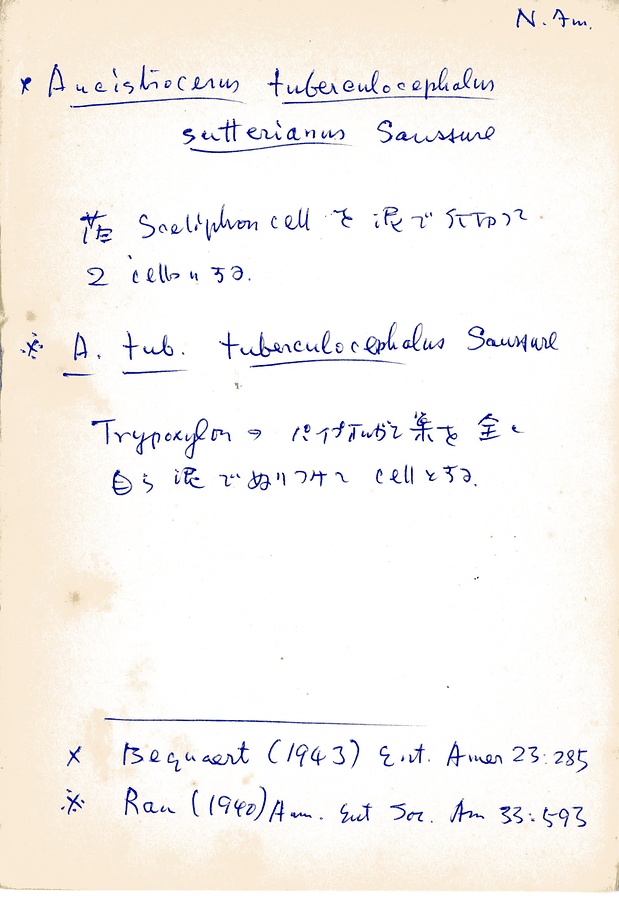 N. Am.
× Ancistrocerus tuberculocephalus
sutterianus Saussure
古 Sceliphron cell を 泥で 仕切って
2 cells にする.
※ A. tub. tuberculocephalus Saussure
Trypoxylon の パイプオルガン 巣を
自ら 泥で ぬりつけて cell とする.
× Bequaert (1943) Ent. Amer 23:285
※ Rau (1940) Ann. Ent Soc. Am 33:593